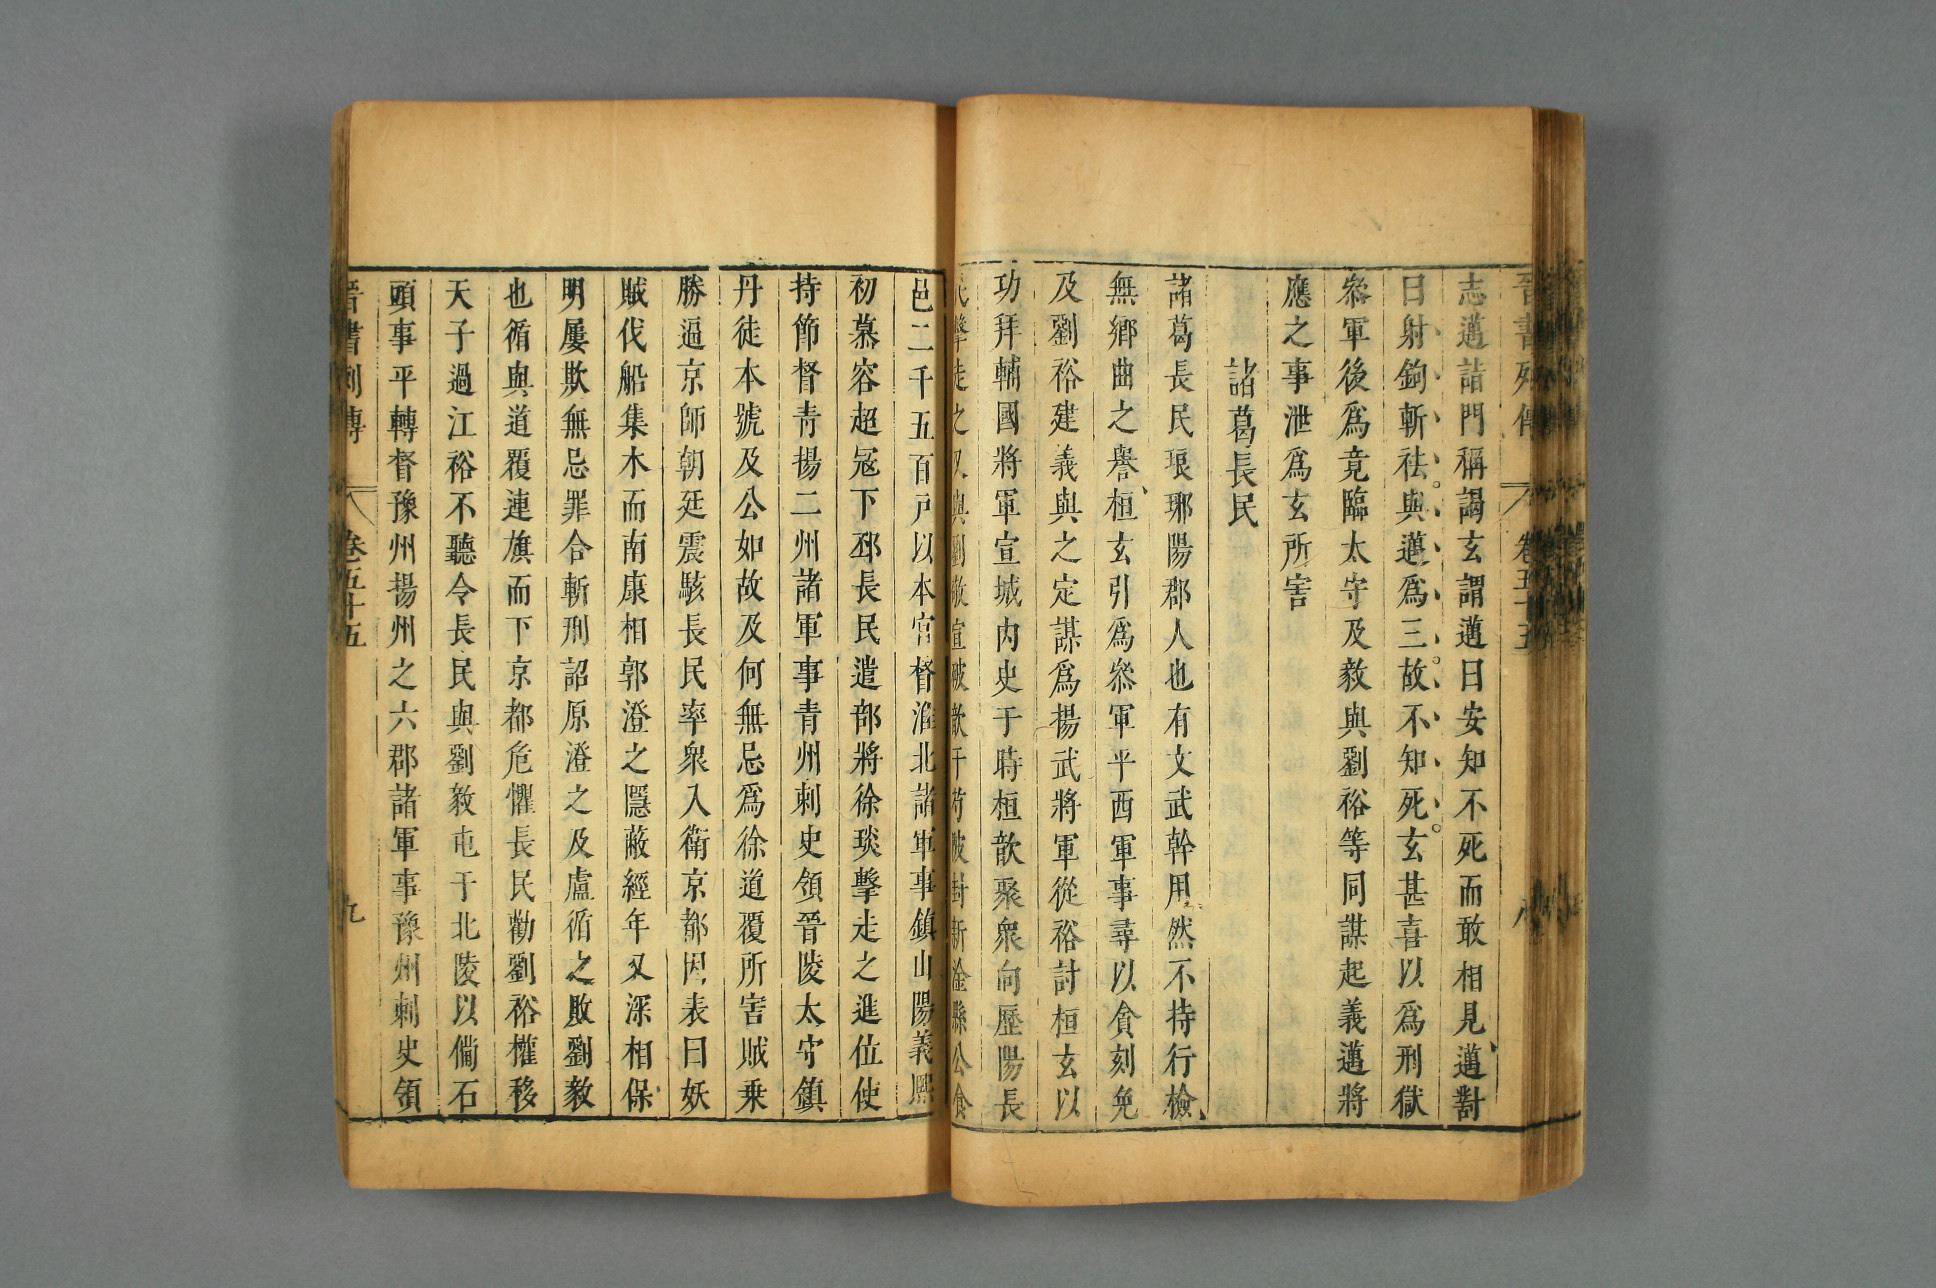 晉書列傳 卷五十五 八
志邁詣門稱謁玄謂邁曰安知不死而敢相見邁對
曰射鉤斬祛與邁爲三故不知死玄甚喜以爲刑獄
叅軍後爲竟臨太守及毅與劉裕等同謀起義邁將
應之事泄爲玄所害
諸葛長民
諸葛長民琅琊陽郡人也有文武幹用然不持行檢
無鄉曲之譽桓玄引爲叅軍平西軍事尋以貪刻免
及劉裕建義與之定謀爲揚武將軍從裕討桓玄以
功拜輔國將軍宣城內史于時桓歆聚衆向歷陽長
民擊走之又與劉敬宣破歆于芍陂封新淦縣公食
邑二千五百戶以本官督淮北諸軍事鎮山陽義熙
初慕容超冦下邳長民遣部將徐琰擊走之進位使
持節督青揚二州諸軍事青州刺史領晉陵太守鎮
丹徒本號及公如故及何無忌爲徐道覆所害賊乗
勝逼京師朝廷震駭長民率衆入衛京都因表曰妖
賊伐船集木而南康相郭澄之隱蔽經年又深相保
明屢欺無忌罪合斬刑詔原澄之及盧循之敗劉毅
也循與道覆連旗而下京都危懼長民勸劉裕權移
天子過江裕不聽令長民與劉毅屯于北陵以備石
頭事平轉督豫州揚州之六郡諸軍事豫州刺史領
晉書列傳 卷五十五 九